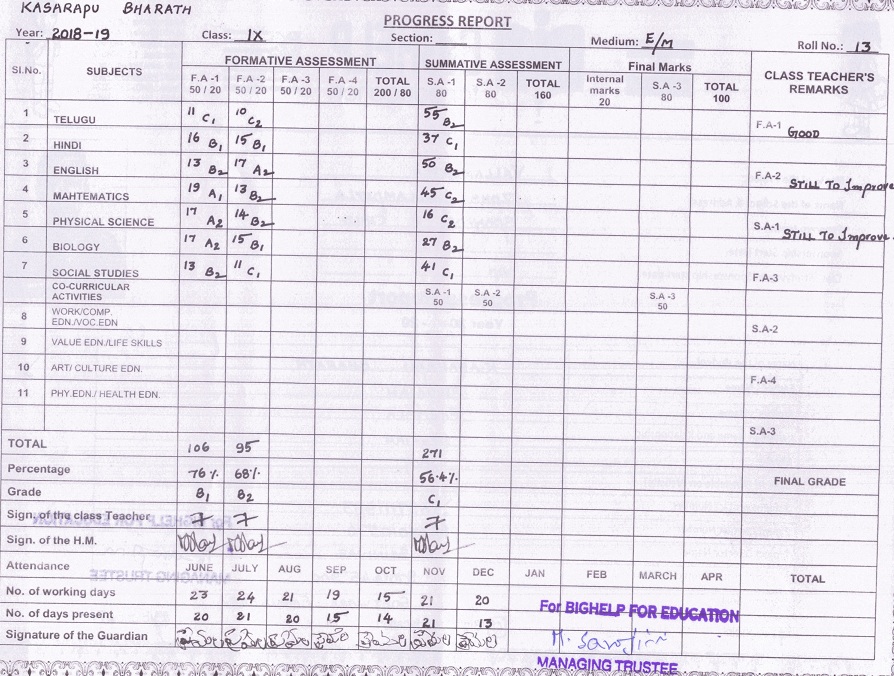 KASARAPU BHARATH
PROGRESS REPORT
Year: 2018-19 Class: IX Section: Medium: E/M Roll No.: 13
Sl.No. SUBJECTS FORMATIVE ASSESSMENT SUMMATIVE ASSESSMENT Final Marks CLASS TEACHER'S REMARKS
F.A -1 50 / 20 F.A -2 50 / 20 F.A -3 50 / 20 F.A -4 50 / 20 TOTAL 200 / 80 S.A -1 80 S.A -2 80 TOTAL 160 Internal marks 20 S.A -3 80 TOTAL 100
1 TELUGU 11 C1 10 C2 55 B2 F.A-1 GOOD
2 HINDI 16 B1 15 B1 37 C1
3 ENGLISH 13 B2 17 A2 50 B2 F.A-2 STILL To Improve
4 MAHTEMATICS 19 A1 13 B2 45 C2
5 PHYSICAL SCIENCE 17 A2 14 B2 16 C2 S.A-1 STILL To Improve.
6 BIOLOGY 17 A2 15 B1 27 B2
7 SOCIAL STUDIES 13 B2 11 C1 41 C1 F.A-3
CO-CURRICULAR ACTIVITIES S.A -1 50 S.A -2 50 S.A -3 50
8 WORK/COMP. EDN./VOC.EDN S.A-2
9 VALUE EDN./LIFE SKILLS
10 ART/ CULTURE EDN. F.A-4
11 PHY.EDN./ HEALTH EDN.
S.A-3
TOTAL 106 95 271
Percentage 76% 68% 56.4% FINAL GRADE
Grade B1 B2 C1
Sign. of the class Teacher
Sign. of the H.M.
Attendance JUNE JULY AUG SEP OCT NOV DEC JAN FEB MARCH APR TOTAL
No. of working days 23 24 21 19 15 21 20
No. of days present 20 21 20 15 14 21 13
Signature of the Guardian
For BIGHELP FOR EDUCATION
MANAGING TRUSTEE